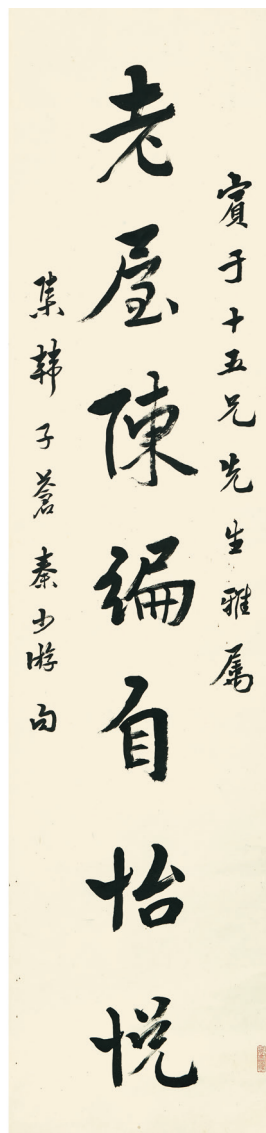 賓于十五兄先生雅属
老屋陳編自怡悅
集韓子蒼秦少游句